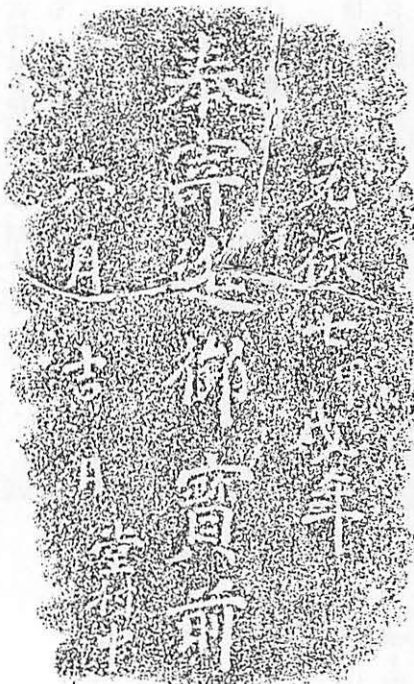 元禄七甲戌年
奉寄進御寶前
六月吉日 當村中